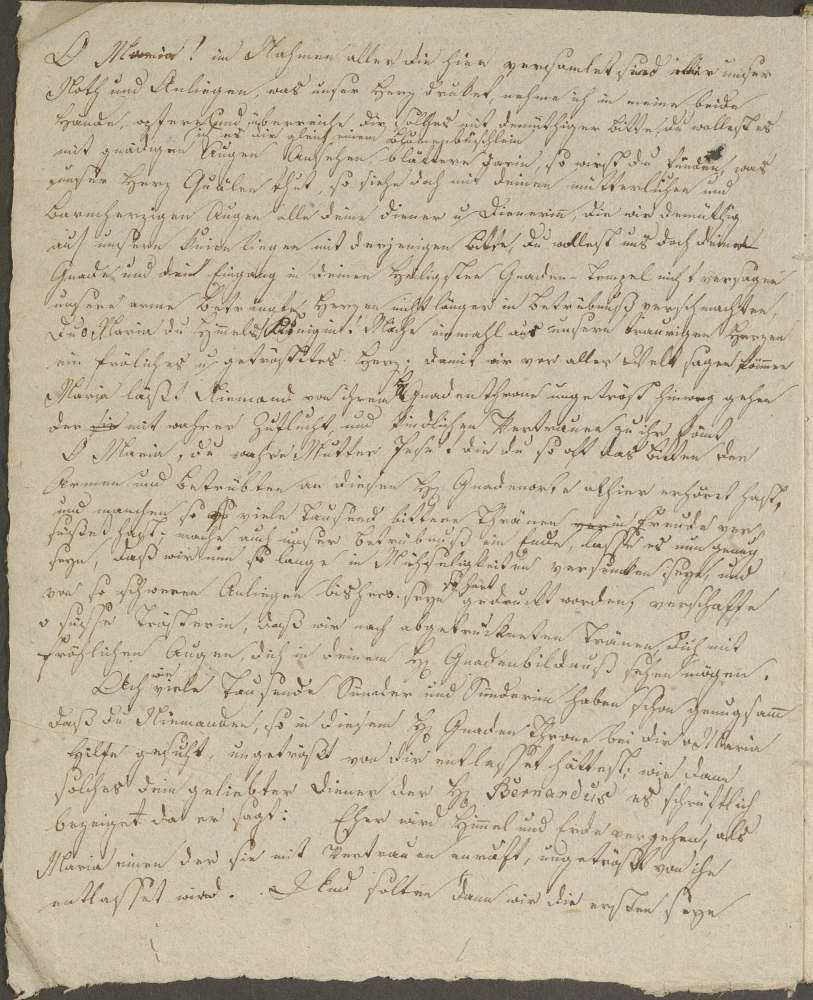 O Maria! im Nahmen aller die hier versamlet sind unser
Noth und Anliegen, was unser Herz drucket nehme ich in meine beide
Hände, opfere und überreiche dir solches mit demüthiger bitte, du wollest es
in es wie gleich einem Blumenbüschlein
mit gnädigen Augen Ansehen blättere darin, so wirst du finden, was
unser Herz Quälen thut, so siehe doch mit deinen mütterlichen und
barmherzigen Augen alle deine diener u Dienerin, die wir demüthig
auf unsern Knien liegen mit derjenigen bitte, Du wollest uns doch deine
Gnade, und dein Eingang in deinen Heiligsten Gnaden-Tempel nicht versagen
unsere arme betrangte Herzen nicht länger in betrübnuß verschmachten,
du o Maria du Himmels Königin! Mache einmahl aus unsern traurigen Herzen
ein fröliches u getröstetes Herz: damit wir vor aller Welt sagen können
Maria läßt Niemand von ihrem Hl Gnadenthrone ungetröst hinweg gehen
der mit wahrer Zuflucht, und kindlichen Vertrauen zu ihr komt
O Maria, du wahre Mutter Jesu! die du so oft das bitten der
Armen und betrübten an diesen Hl Gnadenorte alhier erhöret hast,
und manchen so viele Tausend bittere Thränen in Freude ver
süßet hast; mache auch unser betrübnuß ein Ende, lasse es nun genug
seyn, daß wir nun so lange in Mühseligkeiten versuncken seye, und
von so schweren Anliegen bishero seyn so hart gedruckt worden, verschaffe
o süsse Trösterin, daß wir nach abgetrückneten Tränen, dich mit
fröhlichen Augen, dich in deinem Hl Gnadenbildnuß sehen mögen.
Ach wie viele Tausende Sünder und Sünderin haben schon genugsam
daß du Niemanden, so in diesem Hl Gnaden Throne bei dir o Maria
Hilfe gesucht, ungetröst von dir entlasset hättest; wie dann
solches dein geliebter Diener der Hl Bernardus es schrüftlich
bezeiget da er sagt: Eher wird Himmel und Erde vergehen, als
Maria einen der sie mit Vertrauen anruft, ungetröst von ihr
entlasset wird. Und solten dann wir die ersten seye